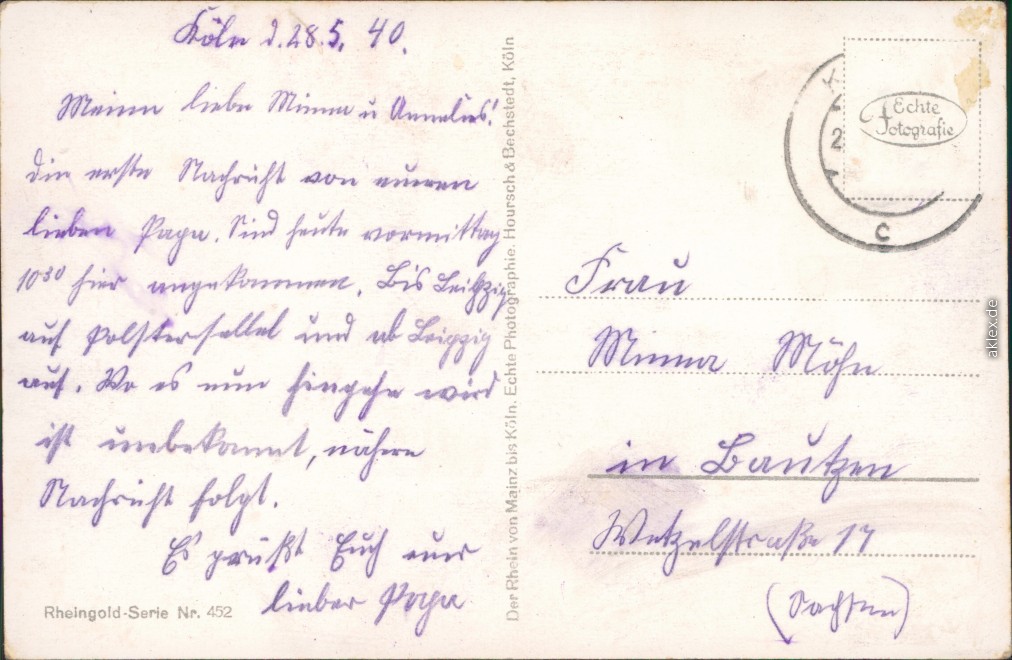 Köln d. 28.5. 40.
Meine liebe Minna u Annelies!
die erste Nachricht von euren
lieben Papa. Sind heute vormittag
10³⁰ hier angekommen. Bis Leipzig
auf und ab Leipzig
auf. Wo es nun hingehn wird
ist unbekannt, nähere
Nachricht folgt.
Es grüßt Euch euer
lieber Papa
Rheingold-Serie Nr. 452
Der Rhein von Mainz bis Köln. Echte Photographie. Hoursch & Bechstedt, Köln
K
2
c
Echte
Fotografie
Frau
Minna Möhn
in Bautzen
Wetzelstraße 17
(Sachsen)
aklex.de